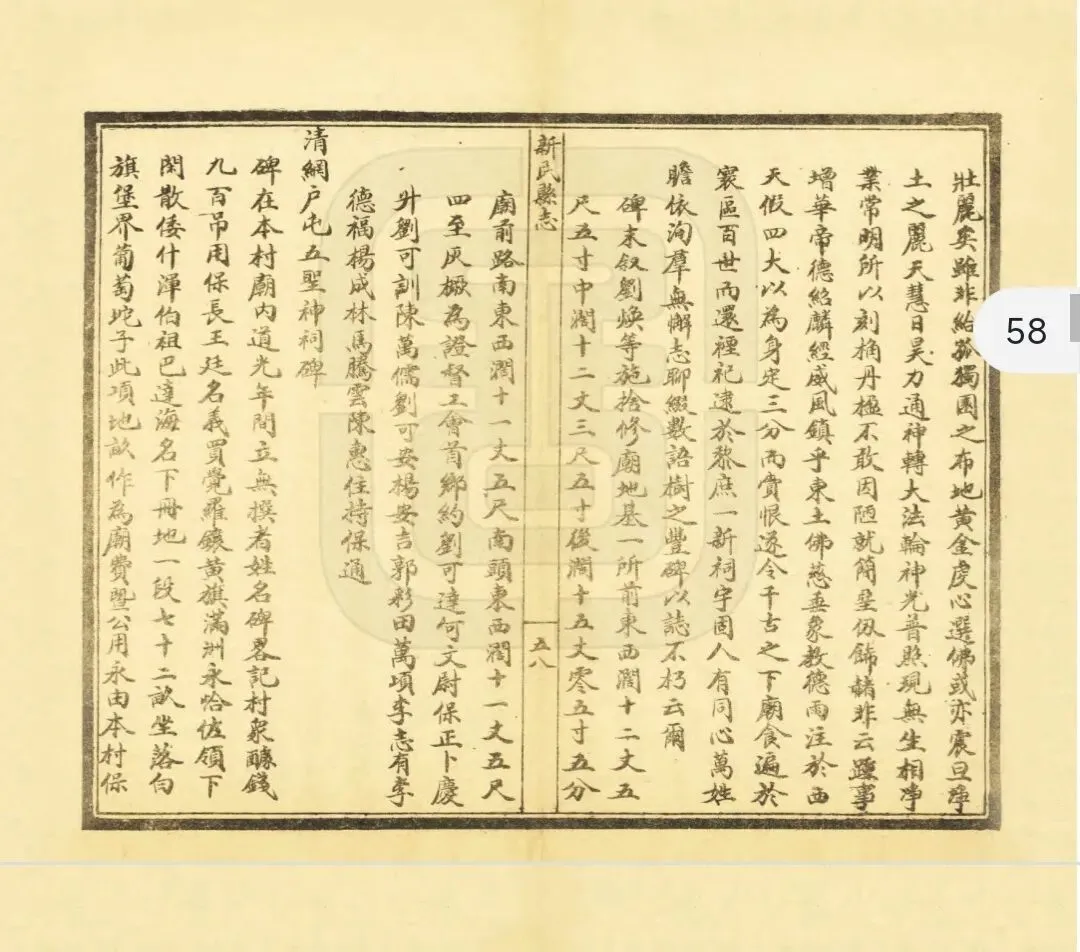 壯麗矣雖非給孤獨園之布地黃金虔心選佛或亦震旦淨
土之麗天慧日昊力通神轉大法輪神光普照現無生相淨
業常明所以刻桷丹楹不敢因陋就簡堊仭飾赭非云踵事
增華帝德紹麟經威風鎮乎東土佛慈垂象教德雨注於西
天假四大以為身定三分而賫恨遂令千古之下廟食遍於
寰區百世而還禋祀逮於黎庶一新祠宇固人有同心萬姓
瞻依洵羣無懈志聊綴數語樹之豐碑以誌不朽云爾
碑末叙劉煥等施捨修廟地基一所前東西濶十二丈五
尺五寸中濶十二丈三尺五寸後濶十五丈零五寸五分
新民縣志
五八
廟前路南東西濶十一丈五尺南頭東西濶十一丈五尺
四至灰橛為證督工會首鄉約劉可達何文尉保正卞慶
升劉可訓陳萬儒劉可安楊安吉郭彩田萬頃李志有李
德福楊成林馬騰雲陳惠住持保通
清網戶屯五聖神祠碑
碑在本村廟內道光年間立無撰者姓名碑畧記村衆醵錢
九百吊用保長王廷名義買覺羅鑲黃旗滿洲永恰佐領下
閑散倭什渾伯祖巴達海名下冊地一段七十二畝坐落白
旗堡界葡萄坨子此項地畝作為廟費暨公用永由本村保
58